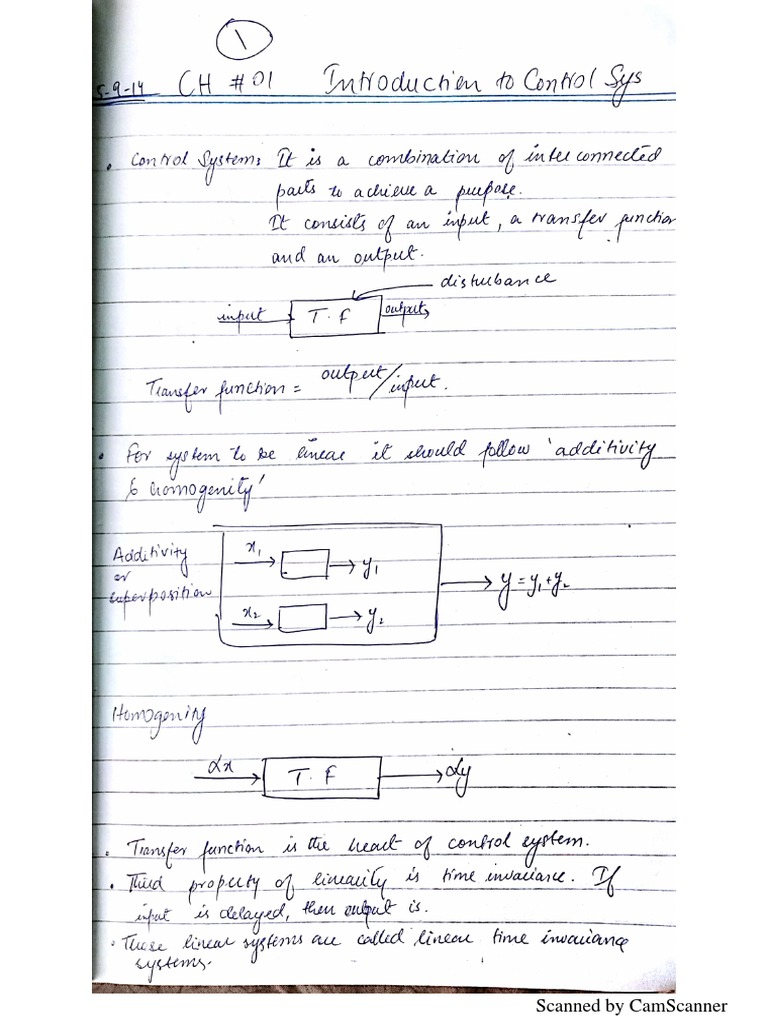 1
5-9-14 CH # 01 Introduction to Control Sys
• Control System: It is a combination of inter connected
parts to achieve a purpose.
It consists of an input, a transfer function
and an output.
disturbance
input T.F output
Transfer function = output/input.
• For system to be linear it should follow 'additivity
& homogenity'
Additivity
or
superposition
x1 y1
x2 y2
y = y1+y2
Homogenity
αx T.F αy
• Transfer function is the heart of control system.
• Third property of linearity is time invariance. If
input is delayed, then output is.
• These linear systems are called linear time invariance
systems.
Scanned by CamScanner